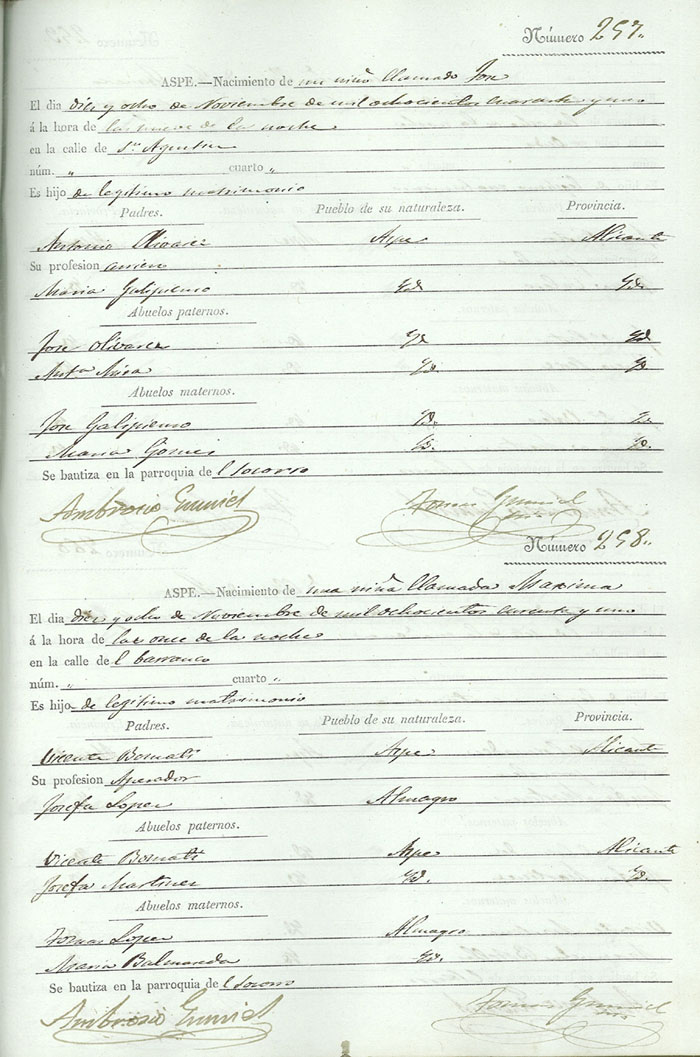 Número 257.
ASPE.—Nacimiento de un niño llamado Jose
El dia diez y ocho de Noviembre de mil ochocientos cuarenta y uno
á la hora de las nueve de la noche
en la calle de Sn Agustin
núm. " cuarto "
Es hijo de legitimo matrimonio
Padres. Pueblo de su naturaleza. Provincia.
Antonio Olivares Aspe Alicante
Su profesion arriero
Maria Galipienso Yd. Yd.
Abuelos paternos.
Jose Olivares Yd. Yd.
Yd. Yd.
Abuelos maternos.
Jose Galipienso Yd. Yd.
Maria Gomes Yd. Yd.
Se bautiza en la parroquia de l Socorro
Ambrosio
Tomas
Número 258.
ASPE.—Nacimiento de una niña llamada Maxima
El dia diez y ocho de Noviembre de mil ochocientos cuarenta y uno
á la hora de las once de la noche
en la calle de l barranco
núm. " cuarto "
Es hijo de legitimo matrimonio
Padres. Pueblo de su naturaleza. Provincia.
Vicente Bernati Aspe Alicante
Su profesion Aperador
Josefa Lopez Almagro
Abuelos paternos.
Vicente Bernati Aspe Alicante
Josefa Martinez Yd. Yd.
Abuelos maternos.
Tomas Lopez Almagro
Maria Balmaseda Yd.
Se bautiza en la parroquia de l Socorro
Ambrosio
Tomas